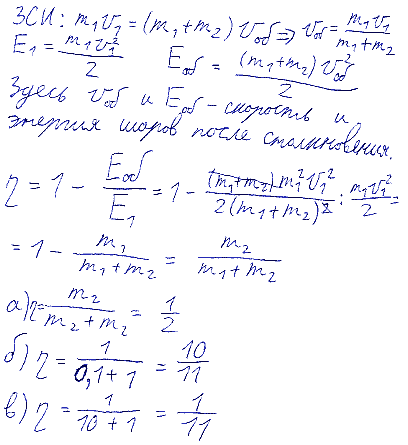 ЗСИ: m₁v₁ = (m₁+m₂) vоб ⇒ vоб = m₁v₁/(m₁+m₂)
E₁ = m₁v₁²/2   Eоб = (m₁+m₂) vоб²/2
Здесь vоб и Eоб - скорость и
энергия шаров после столкновения.
η = 1 - Eоб/E₁ = 1 - (m₁+m₂) m₁² v₁²/2(m₁+m₂)² : m₁v₁²/2 =
= 1 - m₁/(m₁+m₂) = m₂/(m₁+m₂)
а) η = m₂/(m₂+m₂) = 1/2
б) η = 1/(0,1+1) = 10/11
в) η = 1/(10+1) = 1/11